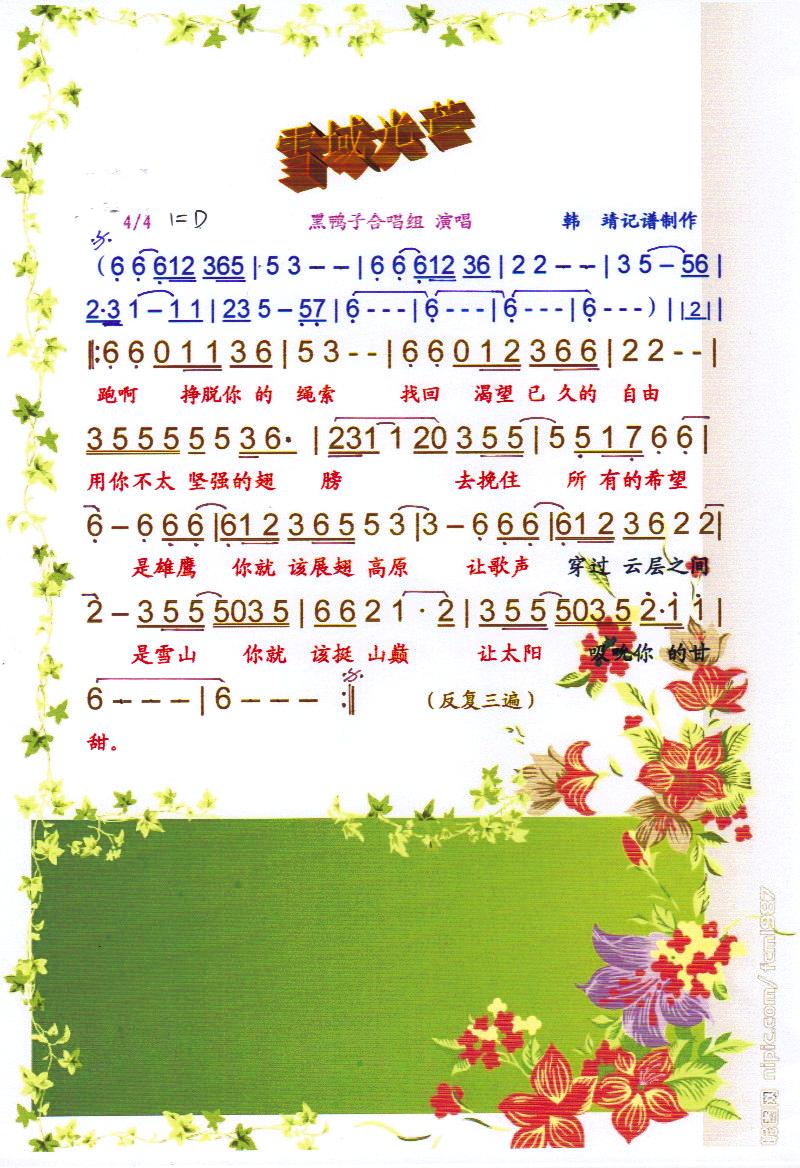 雪域光芒
4/4 1=D 黑鸭子合唱组 演唱 韩 靖记谱制作
(6 6 612 365 | 5 3 – – | 6 6 612 36 | 2 2 – – | 3 5 – 56 |
2·3 1 – 1 1 | 23 5 – 57 | 6 - - - | 6 - - - | 6 - - - | 6 - - - ) | | 2 | |
‖: 6 6 0 1 1 3 6 | 5 3 - - | 6 6 0 1 2 3 6 6 | 2 2 - - |
跑啊 挣脱你 的 绳索 找回 渴望 已 久的 自由
3 5 5 5 5 5 3 6· | 231 1 20 3 5 5 | 5 5 1 7 6 6 |
用你不太 坚强的翅 膀 去挽住 所 有的希望
6 – 6 6 6 | 61 2 3 6 5 5 3 | 3 – 6 6 6 | 61 2 3 6 2 2 |
是雄鹰 你就 该展翅 高原 让歌声 穿过 云层之间
2 – 3 5 5 503 5 | 6 6 2 1 · 2 | 3 5 5 503 5 2·1 1 |
是雪山 你就 该挺 山巅 让太阳 吸吮你 的甘
6 – – – | 6 – – – :‖ (反复三遍)
甜。
昵图网 nipic.com/fcml987